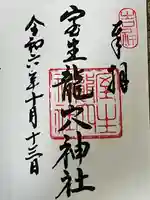 奉拝
室生龍穴神社
令和六年十月十三日